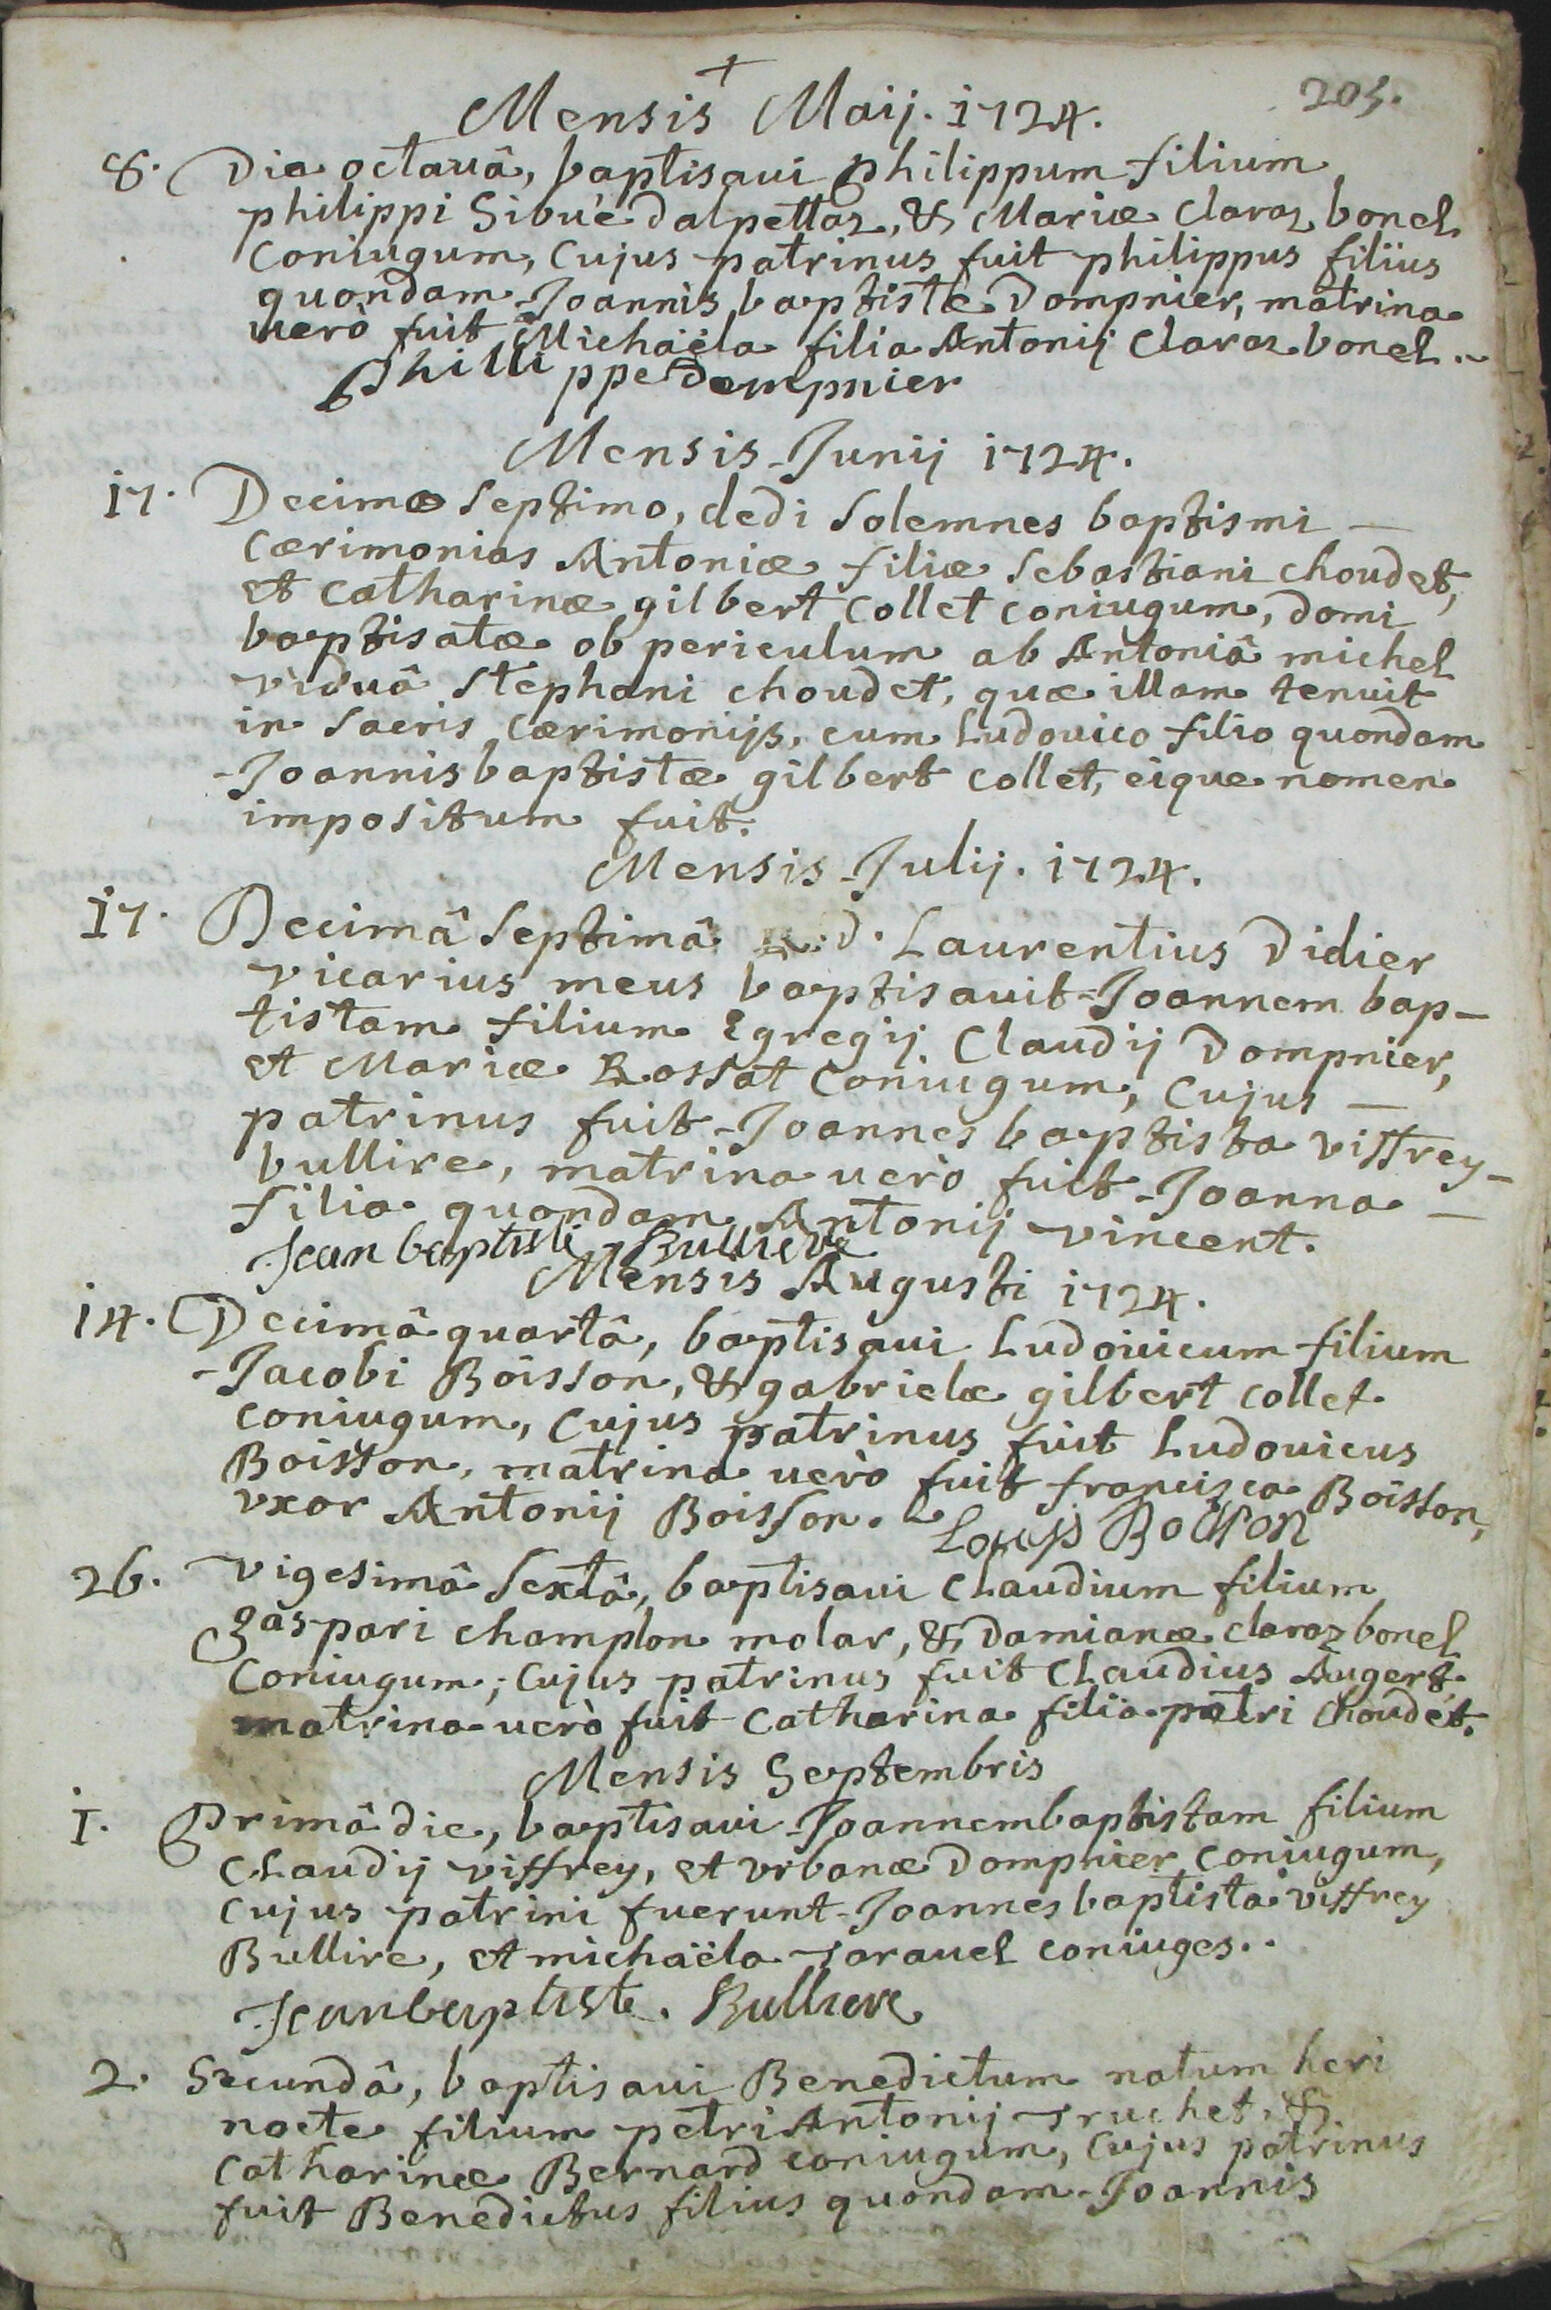 +
Mensis Maij. 1724.
203.
8. Die octauâ, baptisaui philippum filium
philippi Sibué dalpettaz, & Mariæ Claraz bonel
Coniugum, Cujus patrinus fuit philippus filius
quondam Joannis baptistæ Dompnier, matrina
uerò fuit Michaëla filia Antonij Claraz bonel.
Phillippe dompnier
Mensis Junij 1724.
17. Decimo Septimo, dedi Solemnes baptismi —
Cærimonias Antoniæ filiæ Sebastiani choudet,
et Catharinæ gilbert Collet coniugum, domi
baptisatæ ob periculum ab Antoniâ michel
viduâ Stephani choudet, quæ illam tenuit
in Sacris Cærimonijs, cum Ludouico filio quondam
Joannisbaptistæ gilbert Collet, eique nomen
impositum fuit.
Mensis Julij. 1724.
17. Decimâ Septimâ R. d. Laurentius Didier
vicarius meus baptisauit Joannem bap-
tistam filium Egregij Claudij Dompnier,
et Mariæ Rossat Coniugum, Cujus —
patrinus fuit Joannes baptista viffrey-
bullire, matrina uerò fuit Joanna —
filia quondam Antonij vincent.
Jean baptiste Bulliere
Mensis Augusti 1724.
14. Decimâ quartâ, baptisaui Ludouicum filium
Jacobi Boisson, & gabrielæ gilbert collet
coniugum, Cujus patrinus fuit Ludouicus
Boisson, matrina uerò fuit francisca Boisson,
vxor Antonij Boisson.
Louys Boisson
26. vigesimâ Sextâ, baptisaui Claudium filium
gaspari champlon molar, & Damianæ claraz bonel
Coniugum; Cujus patrinus fuit Claudius Augert
matrina uerò fuit Catharina filia petri choudet.
Mensis Septembris
1. Primâ die, baptisaui Joannembaptistam filium
Claudij viffrey, et vrbanæ Dompnier Coniugum,
Cujus patrini fuerunt Joannes baptista viffrey
Bullire, et michaëla taravel coniuges..
Jeanbaptiste. Bulliere
2. Secundâ, baptisaui Benedictum natum heri
nocte filium petri Antonij truchet, &
Catharinæ Bernard coniugum, Cujus patrinus
fuit Benedictus filius quondam Joannis